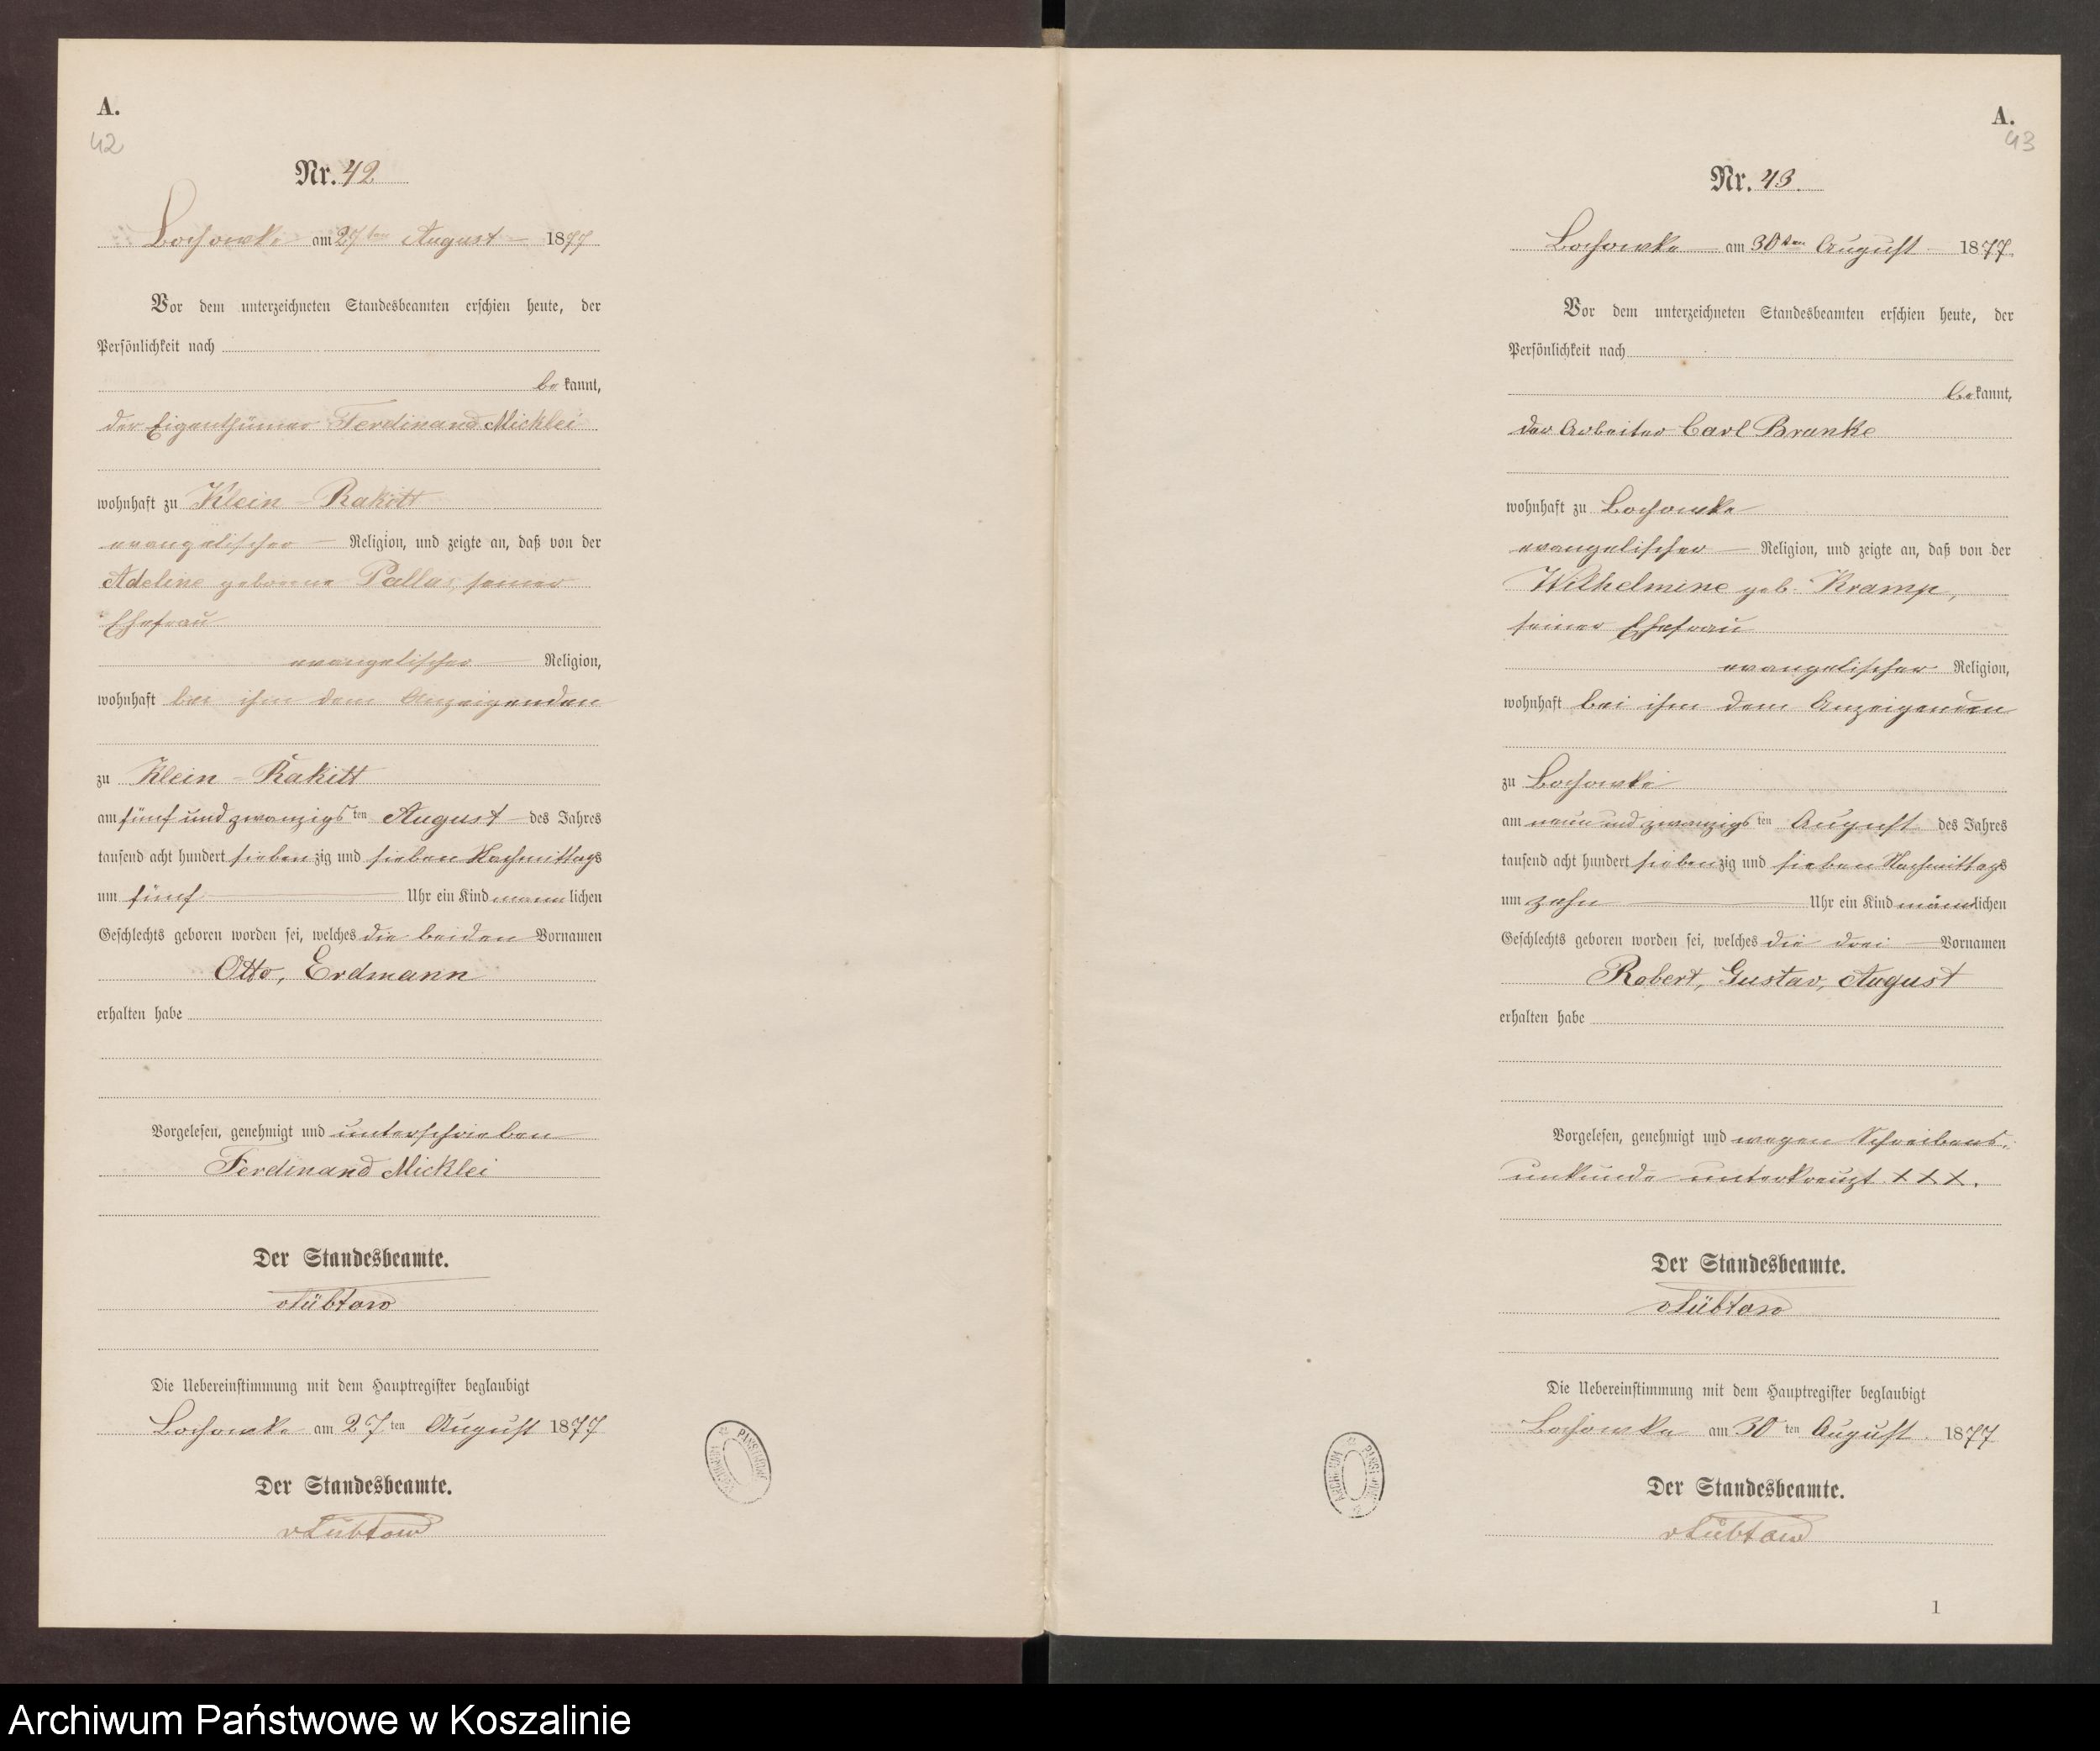 A.
42
Nr. 42
Lochowke am 27ten August 1877
Vor dem unterzeichneten Standesbeamten erschien heute, der
Persönlichkeit nach
be kannt,
der Eigenthümer Ferdinand Micklei
wohnhaft zu Klein-Rakitt
evangelischer Religion, und zeigte an, daß von der
Adeline geborene Pallas, seiner
Ehefrau
evangelischer Religion,
wohnhaft bei ihm dem Anzeigenden
zu Klein-Rakitt
am fünf und zwanzigsten August des Jahres
tausend acht hundert siebenzig und sieben Nachmittags
um fünf Uhr ein Kind männlichen
Geschlechts geboren worden sei, welches die beiden Vornamen
Otto, Erdmann
erhalten habe
Vorgelesen, genehmigt und unterschrieben
Ferdinand Micklei
Der Standesbeamte.
vLübtow
Die Uebereinstimmung mit dem Hauptregister beglaubigt
Lochowke am 27ten August 1877
Der Standesbeamte.
vLübtow
A.
43
Nr. 43.
Lochowke am 30ten August 1877
Vor dem unterzeichneten Standesbeamten erschien heute, der
Persönlichkeit nach
bekannt,
der Arbeiter Carl Branke
wohnhaft zu Lochowke
evangelischer Religion, und zeigte an, daß von der
Wilhelmine geb. Kramp,
seiner Ehefrau
evangelischer Religion,
wohnhaft bei ihm dem Anzeigenden
zu Lochowke
am neun und zwanzigsten August des Jahres
tausend acht hundert siebenzig und sieben Nachmittags
um zehn Uhr ein Kind männlichen
Geschlechts geboren worden sei, welches die drei Vornamen
Robert, Gustav, August
erhalten habe
Vorgelesen, genehmigt und wegen Schreibens-
unkunde unterkreuzt XXX.
Der Standesbeamte.
vLübtow
Die Uebereinstimmung mit dem Hauptregister beglaubigt
Lochowke am 30ten August. 1877
Der Standesbeamte.
vLübtow
1
Archiwum Państwowe w Koszalinie